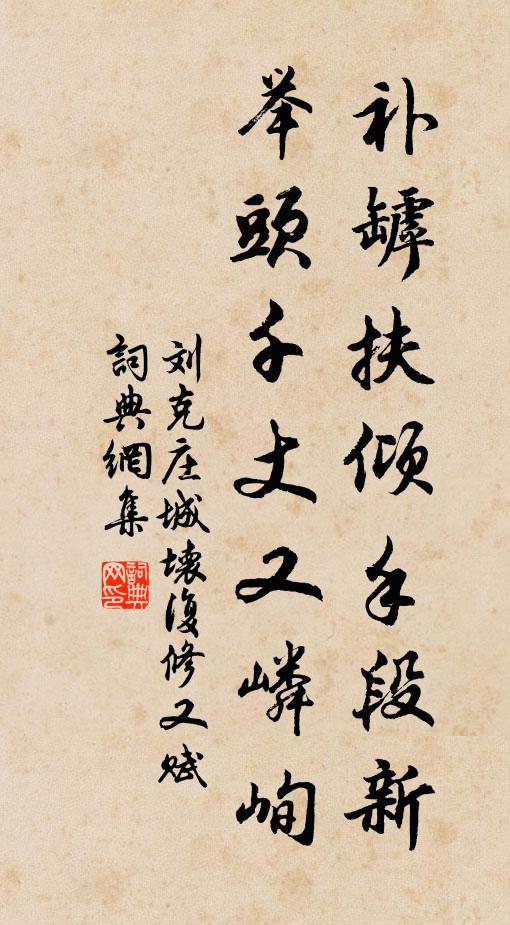 补罅扶倾手段新
举頭千丈又嶙峋
刘克庄城壞復修又赋
詞典網集
詞典网印